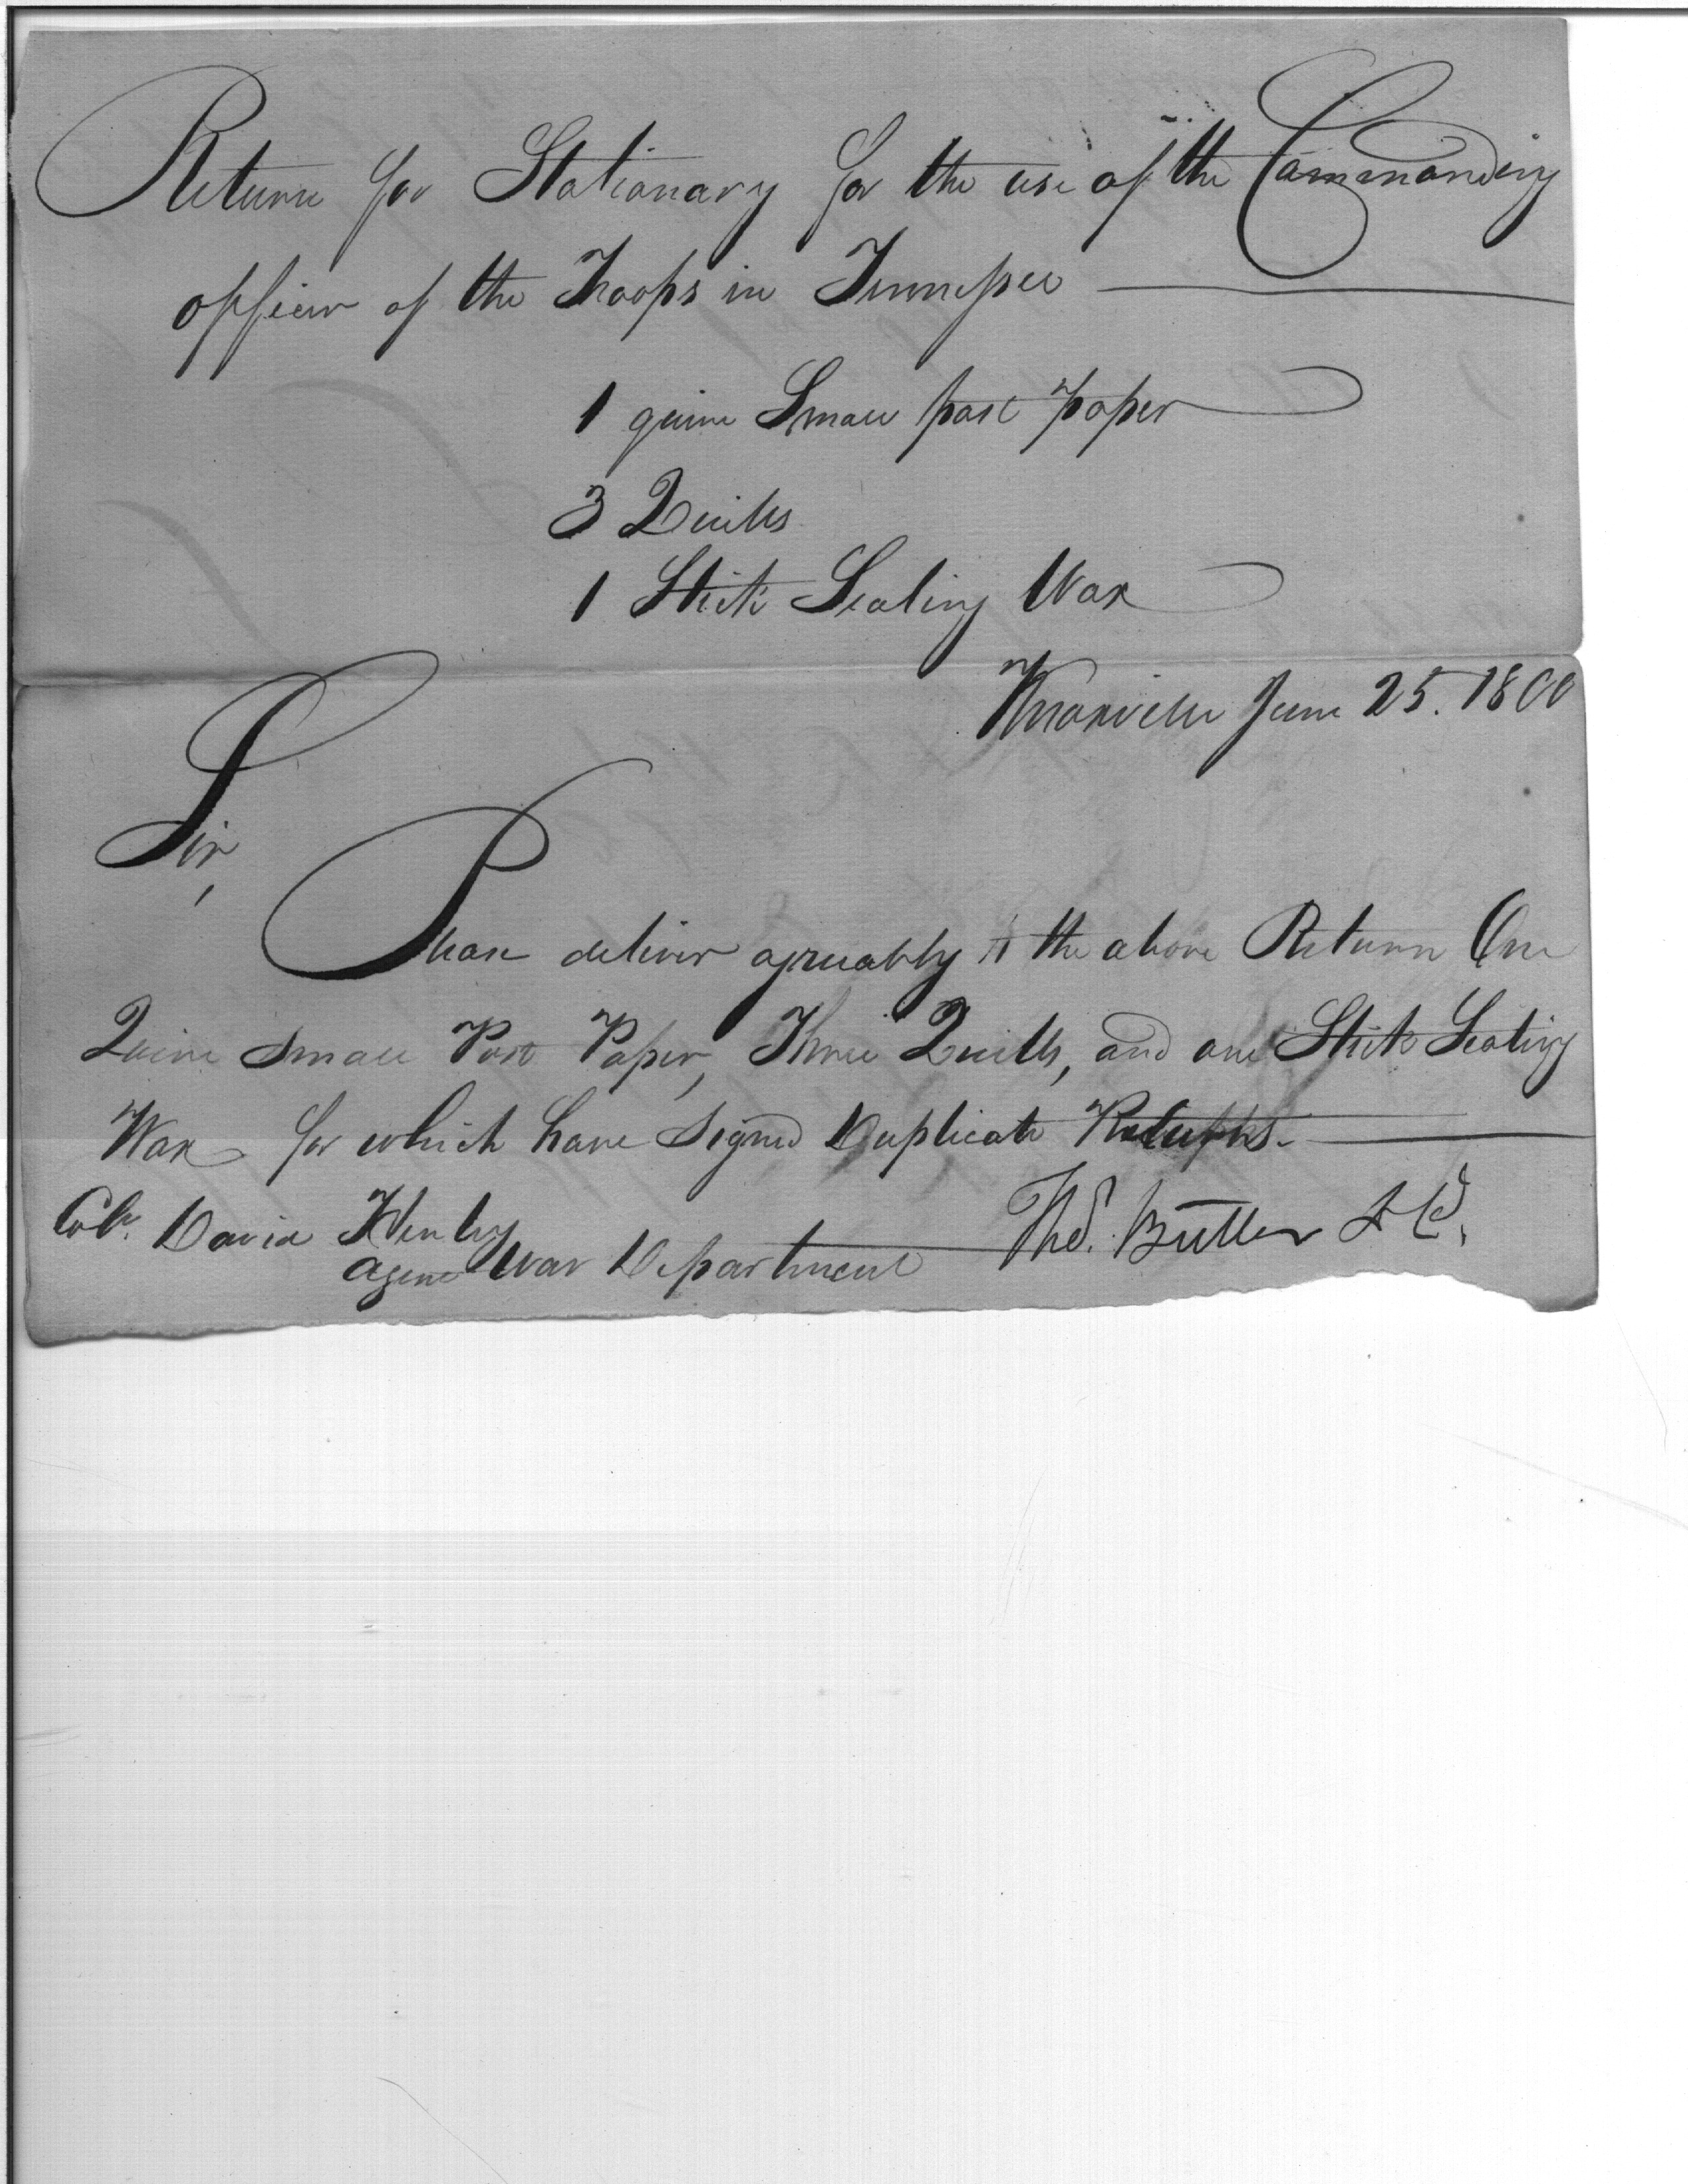 Return for Stationary for the use of the Commanding
officer of the Troops in Tennessee
1 quire Small post paper
3 Quills
1 Stick Sealing Wax
Knoxville June 25. 1800
Sir,
Please deliver agreeably to the above Return One
Quire Small Post Paper, Three Quills, and one Stick Sealing
Wax for which have Signed Duplicate
Colo. David Henley
Agent War Department
Thos. Butler